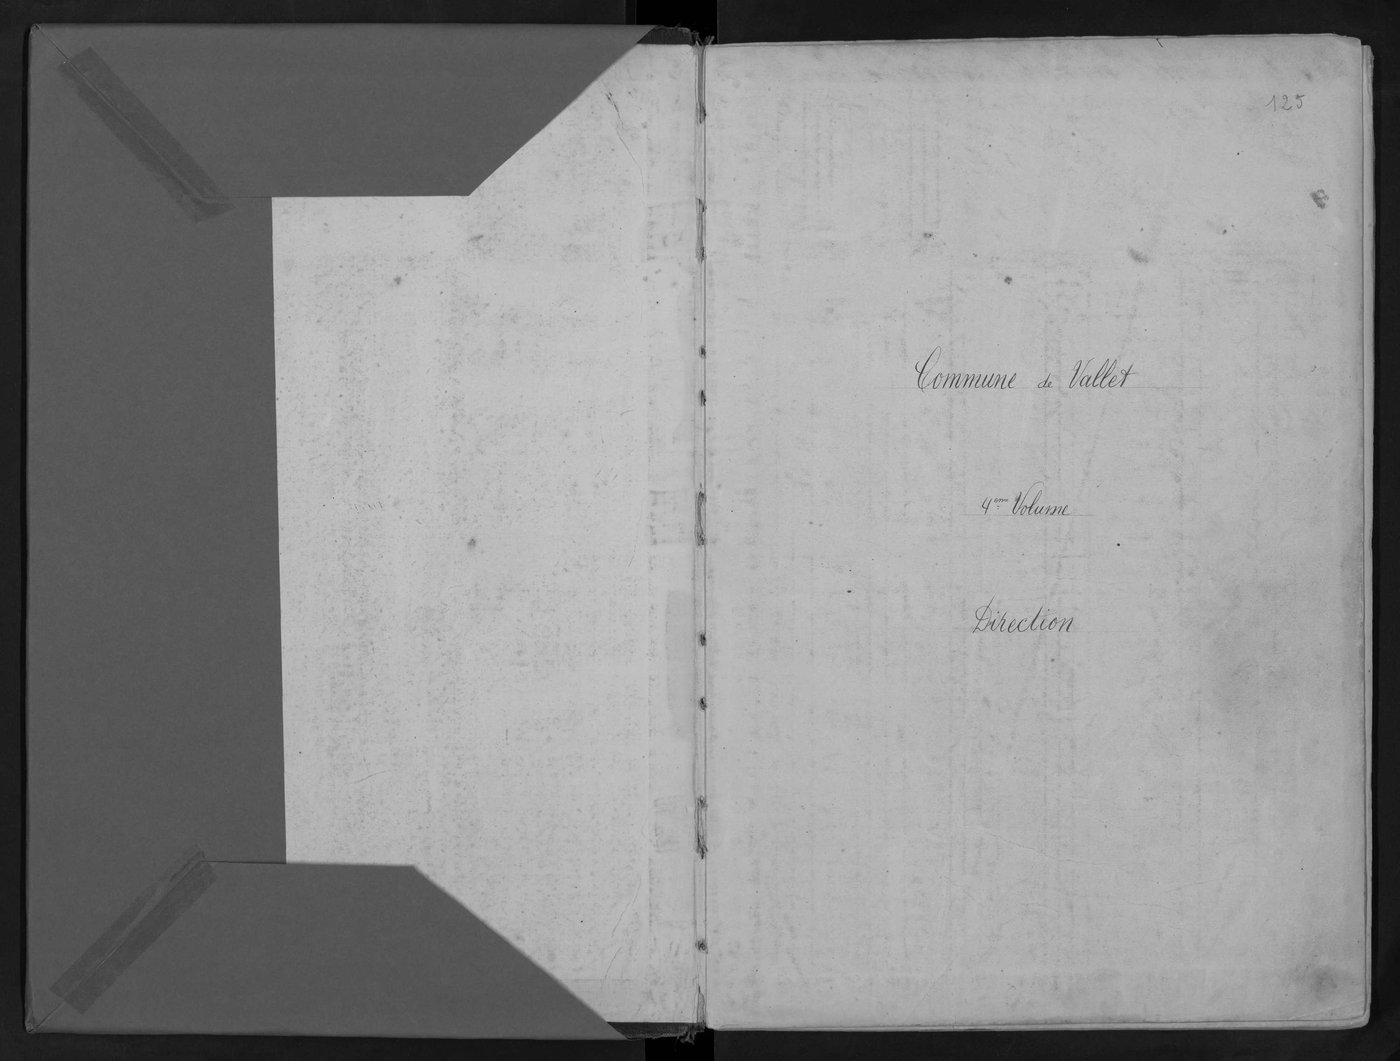 125
Commune de Vallet
4ème Volume
Direction